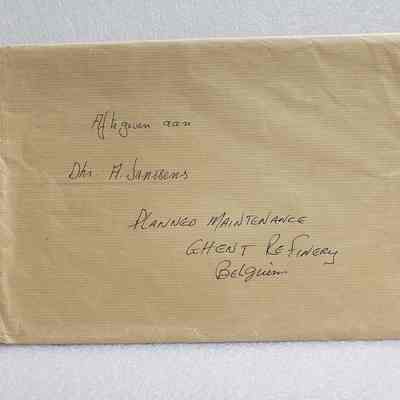 Af te geven aan
Dhr A. Janssens
PLANNED MAINTENANCE
GHENT REFINERY
Belgium